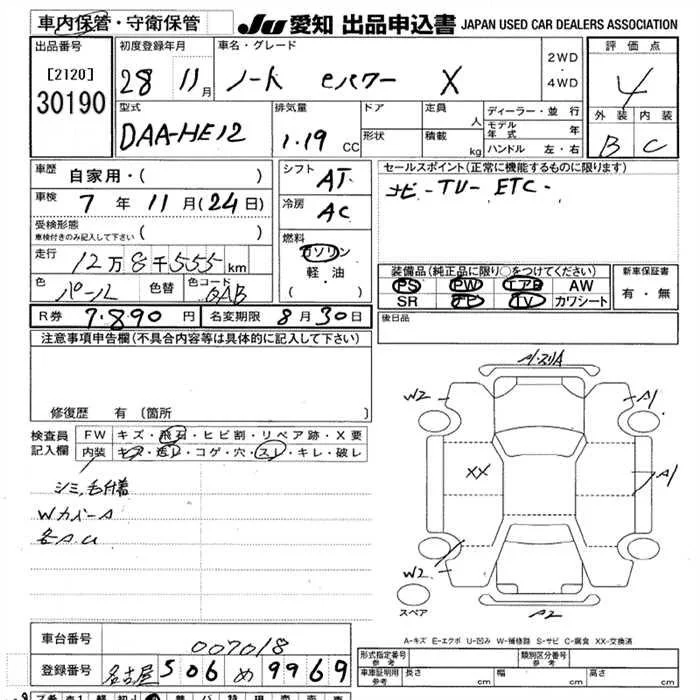 車内保管・守衛保管
JU 愛知 出品申込書 JAPAN USED CAR DEALERS ASSOCIATION
出品番号
[2120]
30190
初度登録年月
28 11月
車名・グレード
ノート eパワー X
2WD
・
4WD
評価点
4
外装 内装
B C
型式
DAA-HE12
排気量
1.19 CC
ドア
形状
定員
人
積載
kg
ディーラー・並行
モデル年式 年
ハンドル 左・右
車歴 自家用・( )
車検 7年11月(24日)
受検形態
車検付きのみ記入して下さい ( )
走行 12万8千555km
色 パール 色替 色コード QAB
シフト AT
冷房 AC
燃料
ガソリン
軽・油
( )
セールスポイント(正常に機能するものに限ります)
ナビ-TV- ETC-
装備品(純正品に限り○をつけてください)
PS PW エアB AW
SR ナビ TV カワシート
新車保証書
有・無
R券 7.890円 名変期限 8月30日
後日品
注意事項申告欄(不具合内容等は具体的に記入して下さい)
修復歴 有(箇所 )
検査員記入欄
FW キズ・飛石・ヒビ割・リペア跡・X要
内装 キズ・汚レ・コゲ・穴・スレ・キレ・破レ
シミ,毛付着
WカバーA
各A.U
A・スリA
W2
A1
XX
A1
W2
A2
スペア
A-キズ E-エクボ U-凹み W-補修跡 S-サビ C-腐食 XX-交換済
車台番号 007018
登録番号 名古屋 506 め 9969
形式指定番号 参考
類別区分番号 参考
車庫証明用 参考 長さ cm 幅 cm 高さ cm